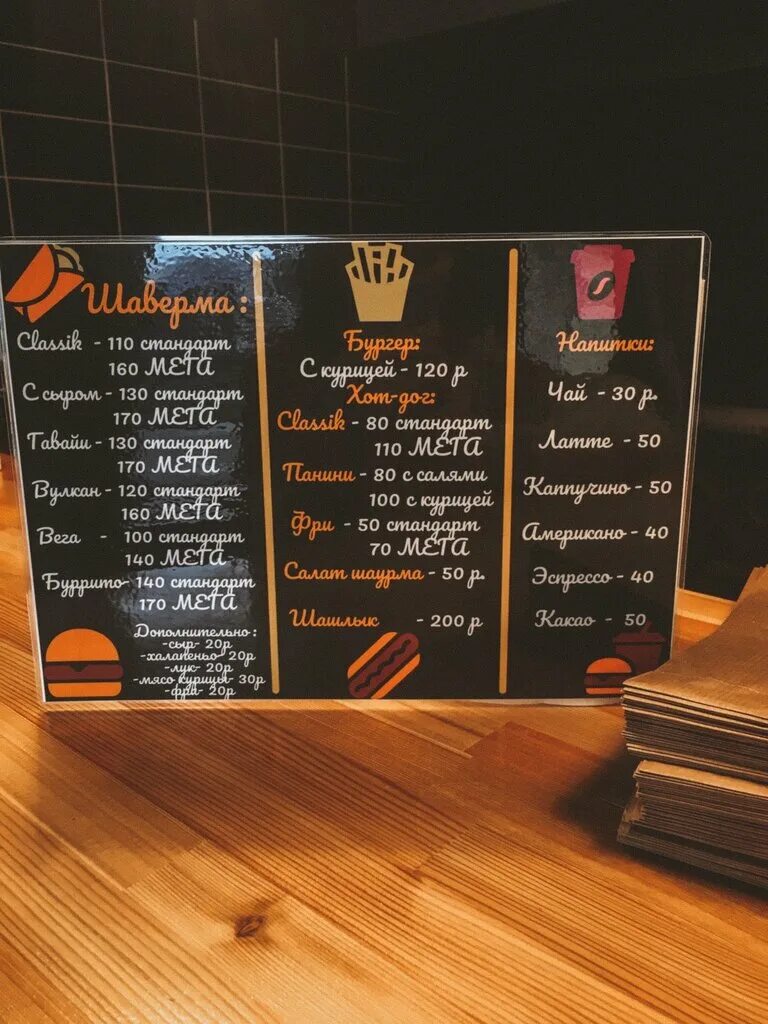 Шаверма:
Classik - 110 стандарт
160 МЕГА
С сыром - 130 стандарт
170 МЕГА
Гавайи - 130 стандарт
170 МЕГА
Вулкан - 120 стандарт
160 МЕГА
Вега - 100 стандарт
140 МЕГА
Буррито - 140 стандарт
170 МЕГА
Дополнительно:
-сыр- 20р
-халапеньо- 20р
-лук- 20р
-мясо курицы- 30р
-фри- 20р
Бургер:
С курицей - 120 р
Хот-дог:
Classik - 80 стандарт
110 МЕГА
Панини - 80 с салями
100 с курицей
Фри - 50 стандарт
70 МЕГА
Салат шаурма - 50 р.
Шашлык - 200 р
Напитки:
Чай - 30 р.
Латте - 50
Каппучино - 50
Американо - 40
Эспрессо - 40
Какао - 50